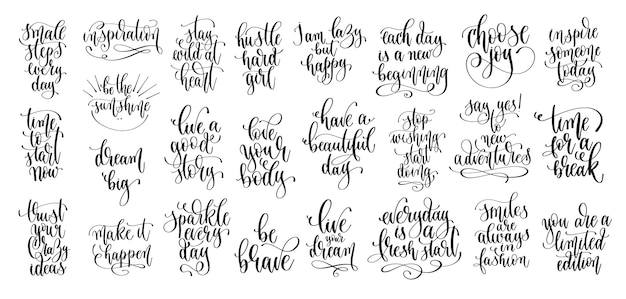 small
steps
every
day
inspiration
stay
wild at
heart
hustle
hard
girl
I am lazy
but
happy
each day
is a new
beginning
choose
joy
inspire
someone
today
be the
sunshine
time
to
start
now
dream
big
live a
good
story
love
your
body
have a
beautiful
day
stop
wishing
start
doing
say yes!
to
new
adventures
time
for a
break
trust
your
crazy
ideas
make it
happen
sparkle
every
day
be
brave
live
your
dream
everyday
is a
fresh start
smiles
are
always
in
fashion
you are a
limited
edition